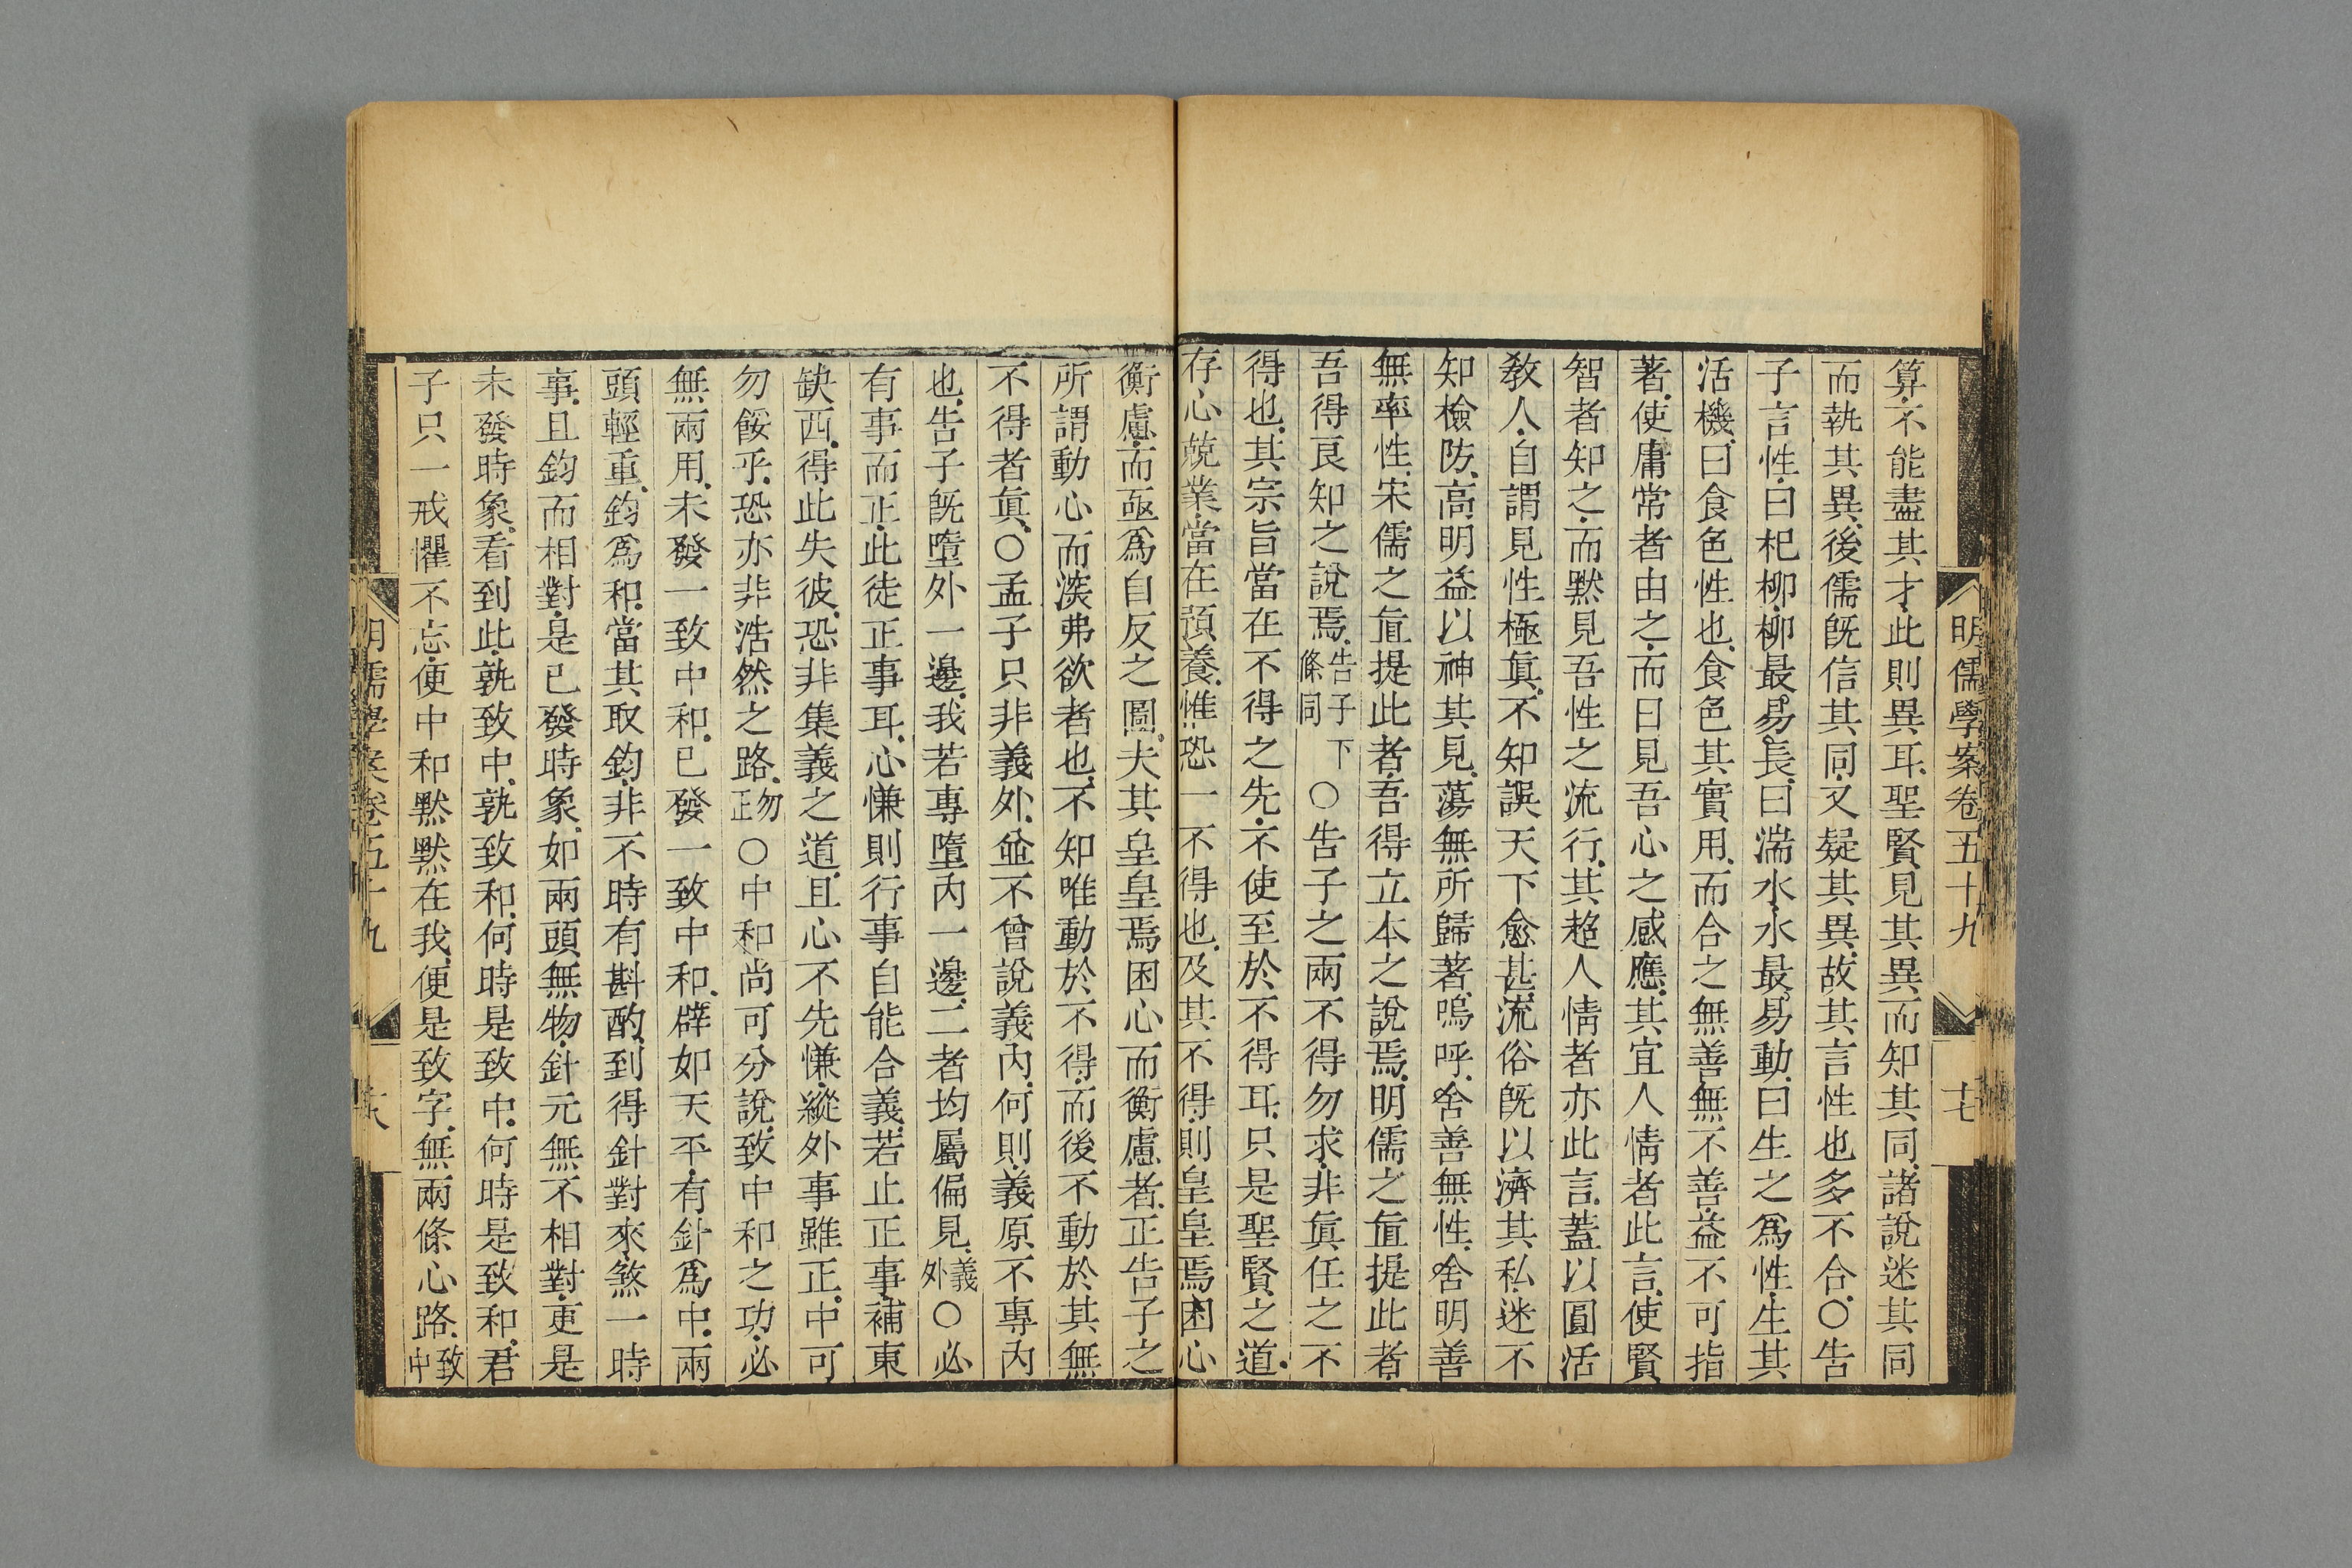 明儒學案卷五十九
十七
算不能盡其才此則異耳聖賢見其異而知其同諸說迷其同
而執其異後儒旣信其同又疑其異故其言性也多不合○告
子言性曰杞柳柳最易長曰湍水水最易動曰生之爲性生其
活機曰食色性也食色其實用而合之無善無不善益不可指
著使庸常者由之而曰見吾心之感應其宜人情者此言使賢
智者知之而默見吾性之流行其趂人情者亦此言蓋以圓活
敎人自謂見性極眞不知誤天下愈甚流俗旣以濟其私迷不
知檢防高明益以神其見蕩無所歸著嗚呼舍善無性舍明善
無率性宋儒之直提此者吾得立本之說焉明儒之直提此者
吾得良知之說焉告子下條同○告子之兩不得勿求非眞任之不
得也其宗旨當在不得之先不使至於不得耳只是聖賢之道
存心兢業當在預養惟恐一不得也及其不得則皇皇焉困心
衡慮而亟爲自反之圖夫其皇皇焉困心而衡慮者正告子之
所謂動心而淡弗欲者也不知唯動於不得而後不動於其無
不得者眞○孟子只非義外並不曾說義內何則義原不專內
也告子旣墮外一邊我若專墮內一邊二者均屬偏見義外○必
有事而正此徒正事耳心慊則行事自能合義若止正事補東
缺西得此失彼恐非集義之道且心不先慊縱外事雖正中可
勿餒乎恐亦非浩然之路勿正○中和尚可分說致中和之功必
無兩用未發一致中和已發一致中和辟如天平有針爲中兩
頭輕重鈞爲和當其取鈞非不時有斟酌到得針對來煞一時
事且鈞而相對是已發時象如兩頭無物針元無不相對更是
未發時象看到此孰致中孰致和何時是致中何時是致和君
子只一戒懼不忘便中和默默在我便是致字無兩條心路致中
明儒學案卷五十九